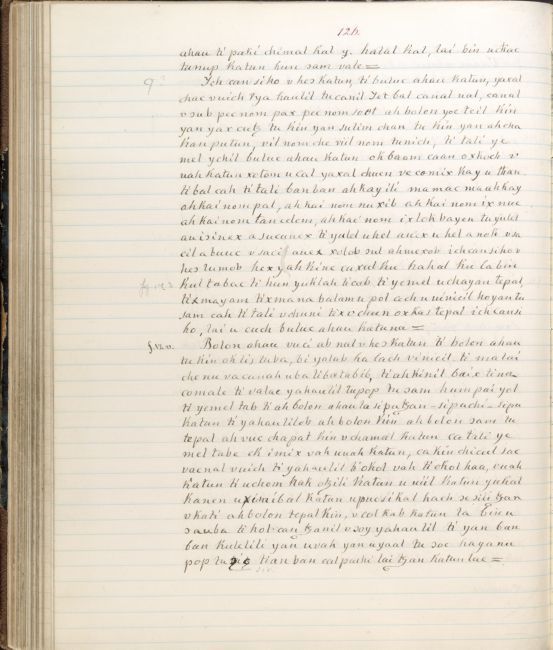 126.
ahau ti pakí chimal kal y. halal kal, lai bin uckac
tunup katun hun sam vale =
9 Ich can siho v hes katun, ti buluc ahau katun, yaxal
chac vuich tya haulil tucanil Yet bal canal ual, canal
v sub pecnom pax pecnom soot ah bolon yoc teil kin
yan yax cutz tu kin yan sulim chan tu kin yan ah cha
kan putun, vil nom che vil nom tunich, ti tali ye
mel ychil buluc ahau katun ok baom caan oxhoch v
uah katun xotom u cal yaxal chuen ve comix kay u than
ti bal cah ti tali ban ban ah kay ili mamac ma ah kay
ah kai nom pal, ah kai nom nu xib ah kai nom ix nuc
ah kai nom tancelem, ah kai nom ix lok bayen tu yulel
cil abuuc v sacil auex xolob sul ahmexob ichcansiho v
hes tumob hex y ah kine ca xul ku hahal ku la bin
kul tabac ti hun yuklah ti cab ti yemel uchayan tepal,
tix mayam tix mana balam u pol cech u uinicil hoyan tu
sam cah ti tali v chuni tix v chun oxhas tepal ichcansi
ho, lai u cuch buluc ahau katuna =
§. 12. v. Bolon ahau vuci ab nal v hes katun ti bolon ahau
tu kin oktis tuba, bi yalab ha lach vinicil ti ma tai
che nu vacunah uba ti batabib, ti ah kinil baix tina
comale ti valac yahaulil tu pop tu sam hum pai yol
ti yemel tab ti ah bolon ahau la sipu tzan – sipuchi – sipu
katun ti yahaulilob ah bolon kin ah bolon sam tu
tepal ah vuc chapat kin v chamal katun ca tali ye
mel tabe ek imix vah uuah katun, ca kin chicul sac
vacnal vuich ti yahaulil ti okol vah ti okol haa, cuah
katun ti uchom hak olzili katun u uiil katun yukal
kanen u ximbal katun upucsikal hach se siii tzan
v kati ah bolon tepal kin, v col kab katun la binu
sauba ti hol can tzanil v soy yahaulil ti yan ban
ban kulelili yan uvah yan uyaal tu soc hayanu
pop tu sic tian ban cal pachi lai tzan katun lae =